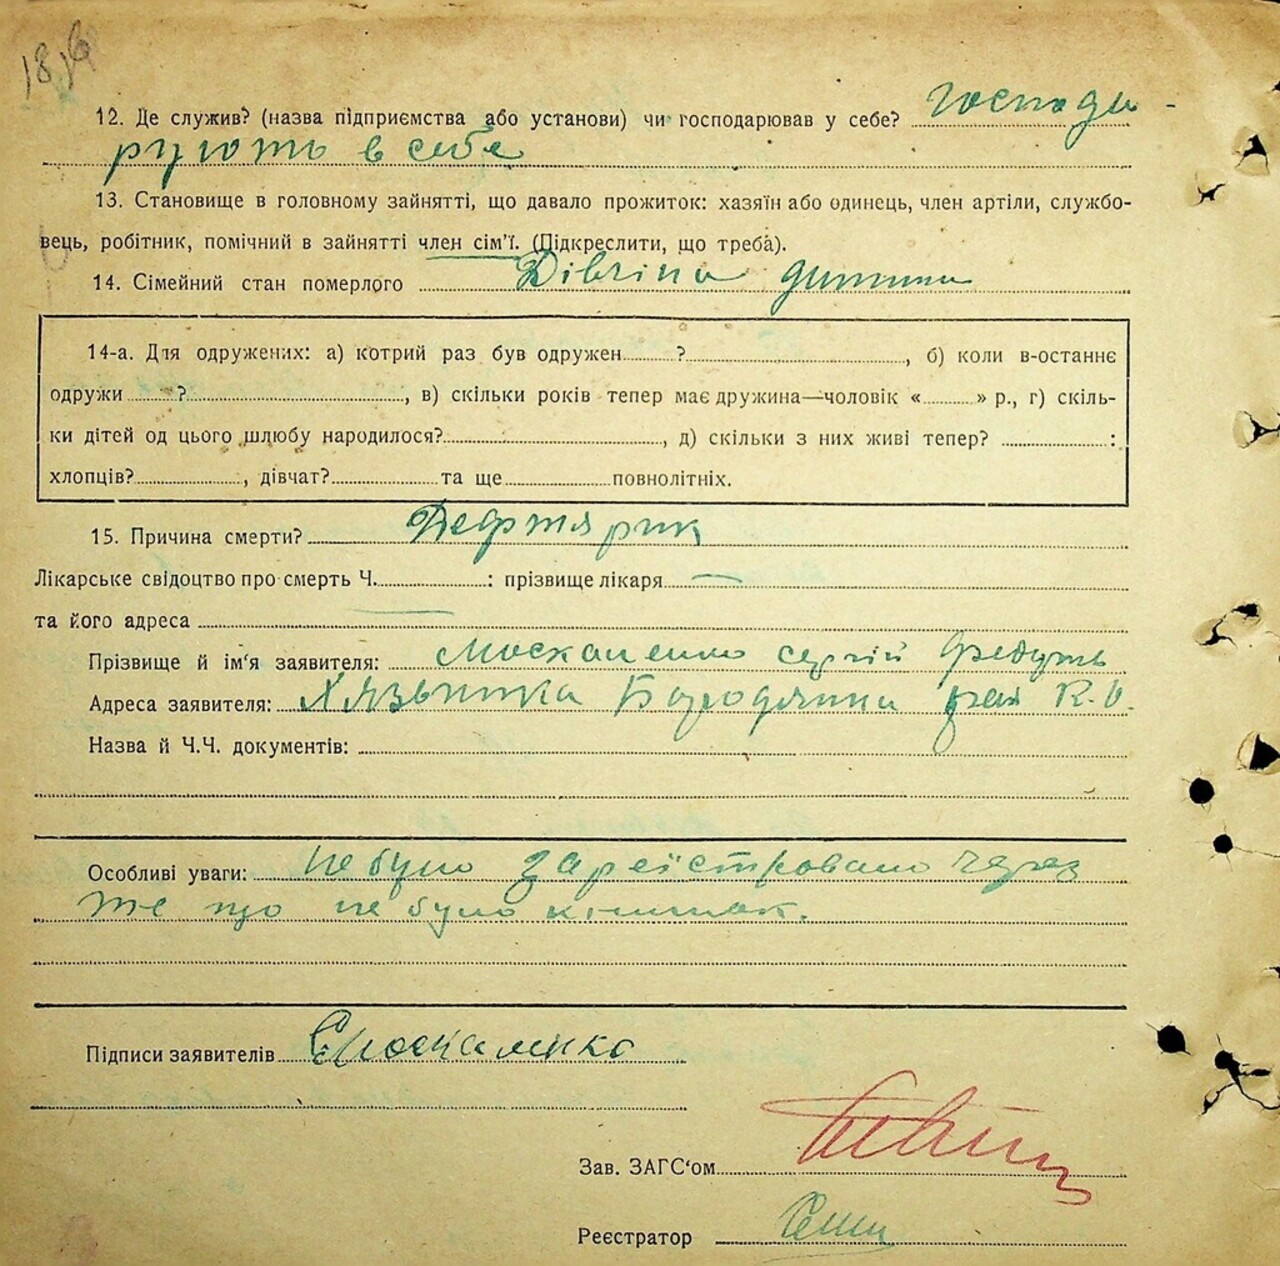 12. Де служив? (назва підприємства або установи) чи господарював у себе? Господа
рують в себе
13. Становище в головному зайнятті, що давало прожиток: хазяїн або одинець, член артілі, службо-
вець, робітник, помічний в зайнятті член сім'ї. (Підкреслити, що треба).
14. Сімейний стан померлого дитина
14-а. Для одружених: а) котрий раз був одружен ? , б) коли в-останнє
одружи ? , в) скільки років тепер має дружина—чоловік « » р., г) скіль-
ки дітей од цього шлюбу народилося? , д) скільки з них живі тепер? :
хлопців? , дівчат? та ще повнолітніх.
15. Причина смерти? Дефтярик
Лікарське свідоцтво про смерть Ч. : прізвище лікаря —
та його адреса
Прізвище й ім'я заявителя: Москаленко сергій
Адреса заявителя: Бородянки рая К.О.
Назва й Ч.Ч. документів:
Особливі уваги: Не було зареїстровано через
те що не було книжок.
Підписи заявителів Москаленко
Зав. ЗАГС'ом
Реєстратор